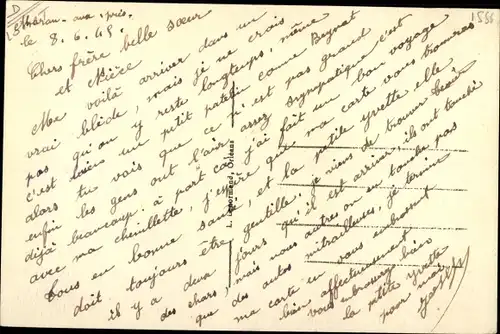 D
1566
St Maran aux prés.
le 8.6.45.
Chers frère belle sœur
et Nièce
Me voilà arriver dans un
vrai blède, mais je ne crois
pas qu'on y reste longtemps, même
c'est loin un petit patelin comme Beynat
alors tu vois que ce n'est pas grand
enfin les gens ont l'air assez sympatique c'est
déjà beaucoup. à part ça j'ai fait un bon voyage
avec ma chenillette, j'espère que ma carte vous trouveras
tous en bonne santé, et la petite yvette elle
doit toujours être gentille. je viens de trouver
il y a deux jours qu'il est arriver, ils ont touché
des chars, mais nous autres on ne touche pas
que des autos mitrailleuses, je termine
ma carte en vous embrassant
bien affectueusement
vous embrasserez bien
la petite yvette
pour moi
L. Lenormand, Orléans